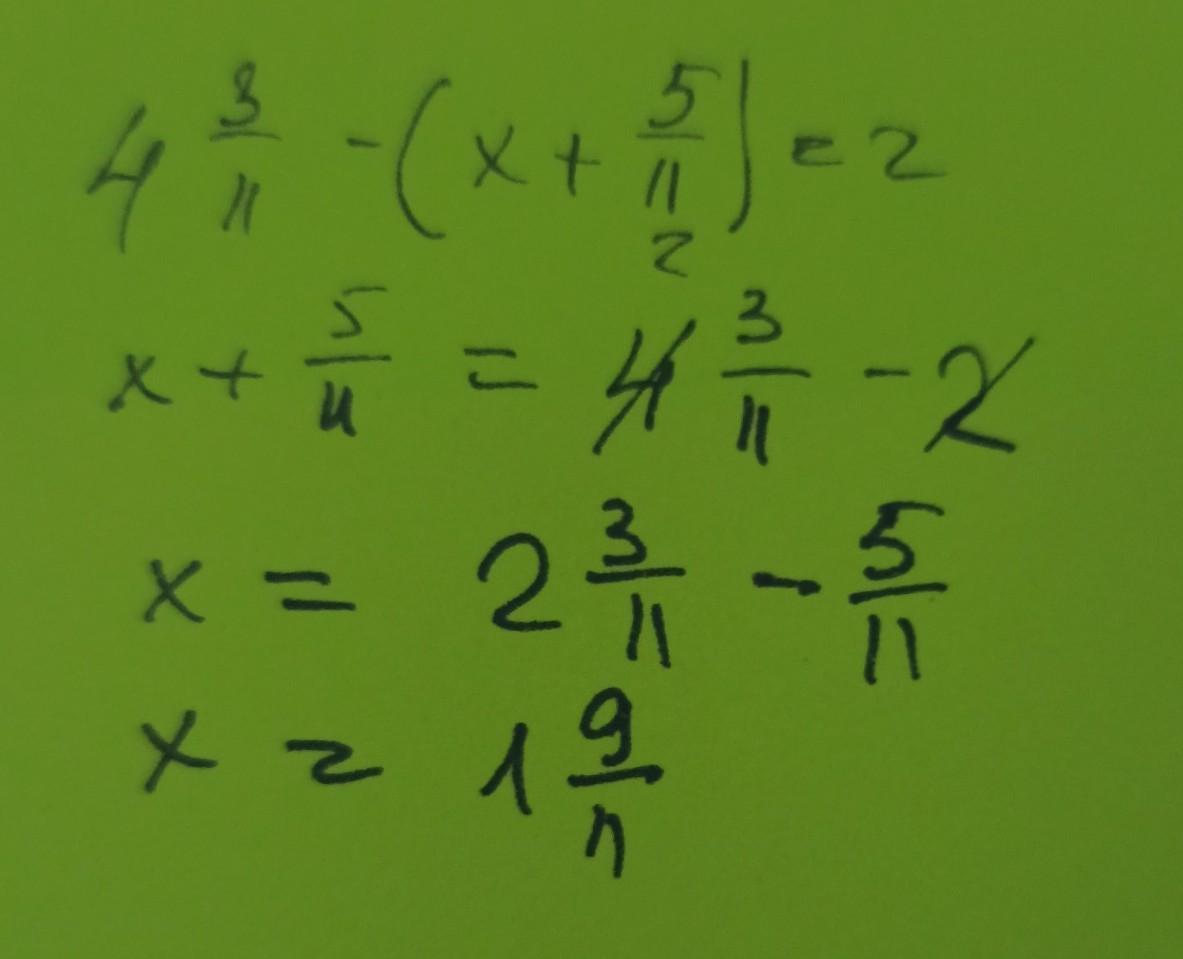 4 3/11 - (x + 5/11) = 2
2
x + 5/11 = 4 3/11 - 2
x = 2 3/11 - 5/11
x = 1 9/11